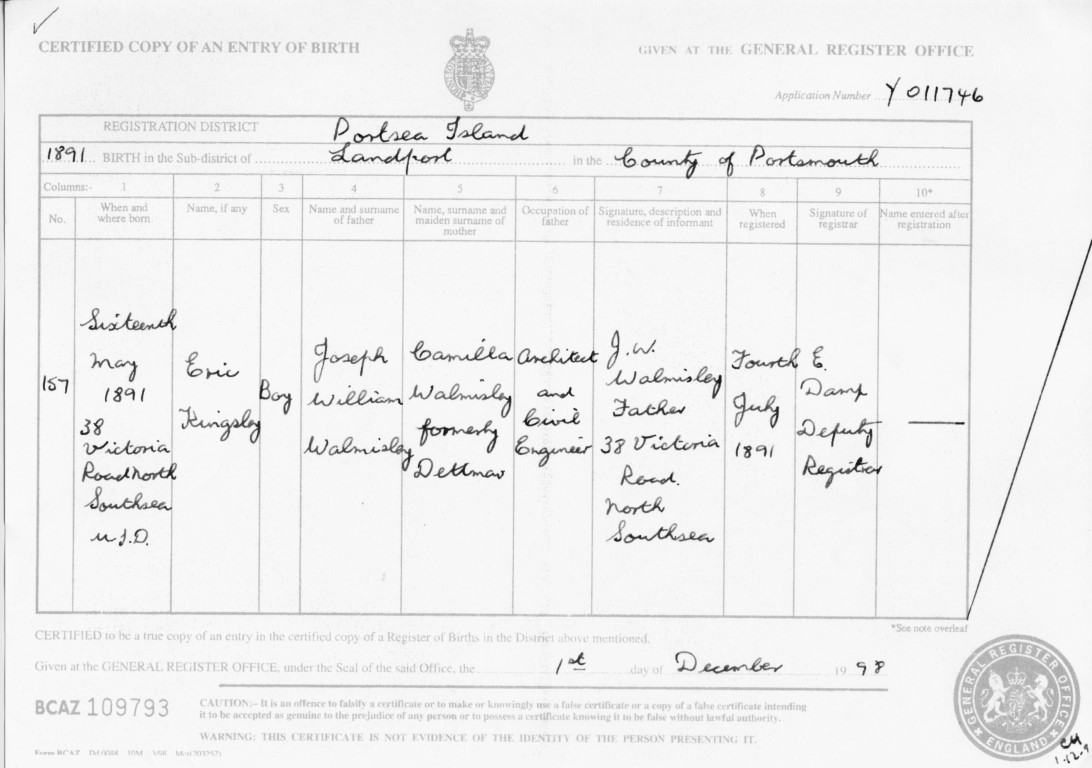 CERTIFIED COPY OF AN ENTRY OF BIRTH
GIVEN AT THE GENERAL REGISTER OFFICE
Application Number Y 011746
REGISTRATION DISTRICT Portsea Island
1891 BIRTH in the Sub-district of Landport in the County of Portsmouth
Columns:- 1 2 3 4 5 6 7 8 9 10*
No. When and where born Name, if any Sex Name and surname of father Name, surname and maiden surname of mother Occupation of father Signature, description and residence of informant When registered Signature of registrar Name entered after registration
157
Sixteenth
May
1891
38
Victoria
Road North
Southsea
U.S.D.
Eric
Kingsley
Boy
Joseph
William
Walmisley
Camilla
Walmisley
formerly
Dettmar
Architect
and
Civil
Engineer
J.W.
Walmisley
Father
38 Victoria
Road.
North
Southsea
Fourth
July
1891
E.
Damp
Deputy
Registrar
*See note overleaf
CERTIFIED to be a true copy of an entry in the certified copy of a Register of Births in the District above mentioned.
Given at the GENERAL REGISTER OFFICE, under the Seal of the said Office, the 1st day of December 19 98
BCAZ 109793
CAUTION:- It is an offence to falsify a certificate or to make or knowingly use a false certificate or a copy of a false certificate intending
it to be accepted as genuine to the prejudice of any person or to possess a certificate knowing it to be false without lawful authority.
WARNING: THIS CERTIFICATE IS NOT EVIDENCE OF THE IDENTITY OF THE PERSON PRESENTING IT.
Form BCAZ
GENERAL REGISTER OFFICE
ENGLAND